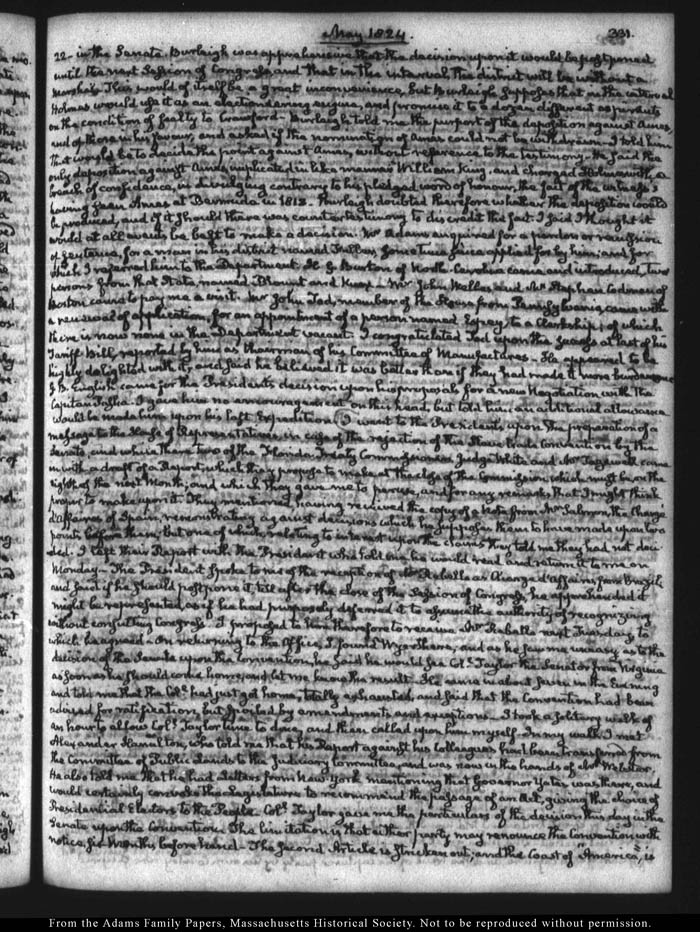 May 1824.
331.
22. in the Senate. Burleigh was apprehensive that the decision upon it would be postponed
until the next Session of Congress and that in the interval the district will be without a
Marshal. This would of itself be a great inconvenience, but Burleigh supposes that in the interval
Holmes would use it as an electioneering engine, and promise it to a dozen different aspirants
on the condition of fealty to Crawford. Burleigh told me the purport of the deposition against Ames
and of those in his favour, and asked if the nomination of Ames could not be withdrawn. I told him
that would be to decide the point against Ames, without reference to the testimony. He said the
only deposition against Ames implicated in like manner William King, and charged Holmes with a
breach of confidence, in divulging contrary to his pledged word of honour, the fact of the witness's
having seen Ames at Bermuda in 1813. Burleigh doubted therefore whether the deposition would
be produced, and if it should there was counter testimony to discredit the fact. I said I thought it
would at all events be best to make a decision. Mr Adams enquired for a pardon or remission
of sentence, for a man in his district named Fuller, sometime since applied for by him; and for
which I referred him to the Department. H. G. Burton of North-Carolina came and introduced, two
persons from that State, named Blount and Kuex. Mr John Welles and Mr Stephen Codman of
Boston came to pay me a visit. Mr John Tod, member of the House from Pennsylvania came with
a renewal of application, for an appointment of a person named Espey, to a Clerkship; of which
there is now none in the Department vacant. I congratulated Tod upon the success at last of his
Tariff Bill, reported by him as Chairman of his Committee of Manufactures. He appeared to be
highly delighted with it, and said he believed it was better than if they had made it more burdensome
G. B. English came for the President's decision upon his proposals for a new Negotiation with the
Capitan Pasha. I gave him no encouragement on this head, but told him an additional allowance
would be made him upon his last Expedition. I went to the President's upon the preparation of a
message to the House of Representatives in case of the rejection of the Slave trade Convention by the
Senate, and while there two of the Florida Treaty Commissioners Judge White and Mr Tazewell came
in with a draft of a Report, which they propose to make at the close of the Commission which must be on the
eighth of the next Month; and which they gave me to peruse, and for any remarks that I might think
proper to make upon it. They mentioned, having received the copy of a Note from Mr Salmon, the Chargé
d'affaires of Spain, remonstrating against decisions which he supposes them to have made upon two
points before them, but one of which, relating to interest upon the claims they told me they had not deci-
ded. I left their Report with the President who told me he would read and return it to me on
Monday. The President spoke to me of the reception of Mr Rebello as Chargé d'Affaires from Brazil;
and said if he should postpone it till after the close of the Session of Congress, he apprehended it
might be represented, as if he had purposely deferred it to assume the authority of recognizing
without consulting Congress. I proposed to him therefore to receive Mr Rebello next Tuesday, to
which he agreed. On returning to the Office, I found Wyer there; and as he saw me uneasy as to the
decision of the Senate upon the Convention, he said he would see Coll. Taylor the Senator from Virginia
as soon as he should come home, and let me know the result. He came in about seven in the Evening
and told me that the Coll. had just got home, totally exhausted, and said that the Convention had been
advised for ratification, but spoiled by amendments and exceptions. I took a solitary walk of
an hour to allow Coll. Taylor time to dine, and then called upon him myself. In my walk I met
Alexander Hamilton, who told me that his Report against his colleagues had been transferred from
the Committee of Public Lands to the Judiciary Committee, and was now in the hands of Mr Webster.
He also told me that he had Letters from New York mentioning that Governor Yates was there, and
would certainly convoke the Legislature to recommend the passage of an Act, giving the choice of
Presidential Electors to the People. Coll. Taylor gave me the particulars of the decision this day in the
Senate upon the Convention. The limitation is that either party may renounce the Convention with
notice, Six Months before hand. The second Article is stricken out; and the Coast of "America", is
From the Adams Family Papers, Massachusetts Historical Society. Not to be reproduced without permission.